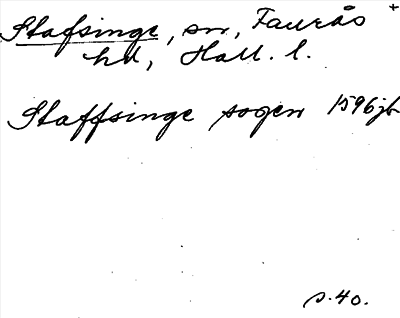 Stafsinge, sn, Faurås +
hd, Hall. l.
Staffsinge sogen 1596 jb
s. 40.